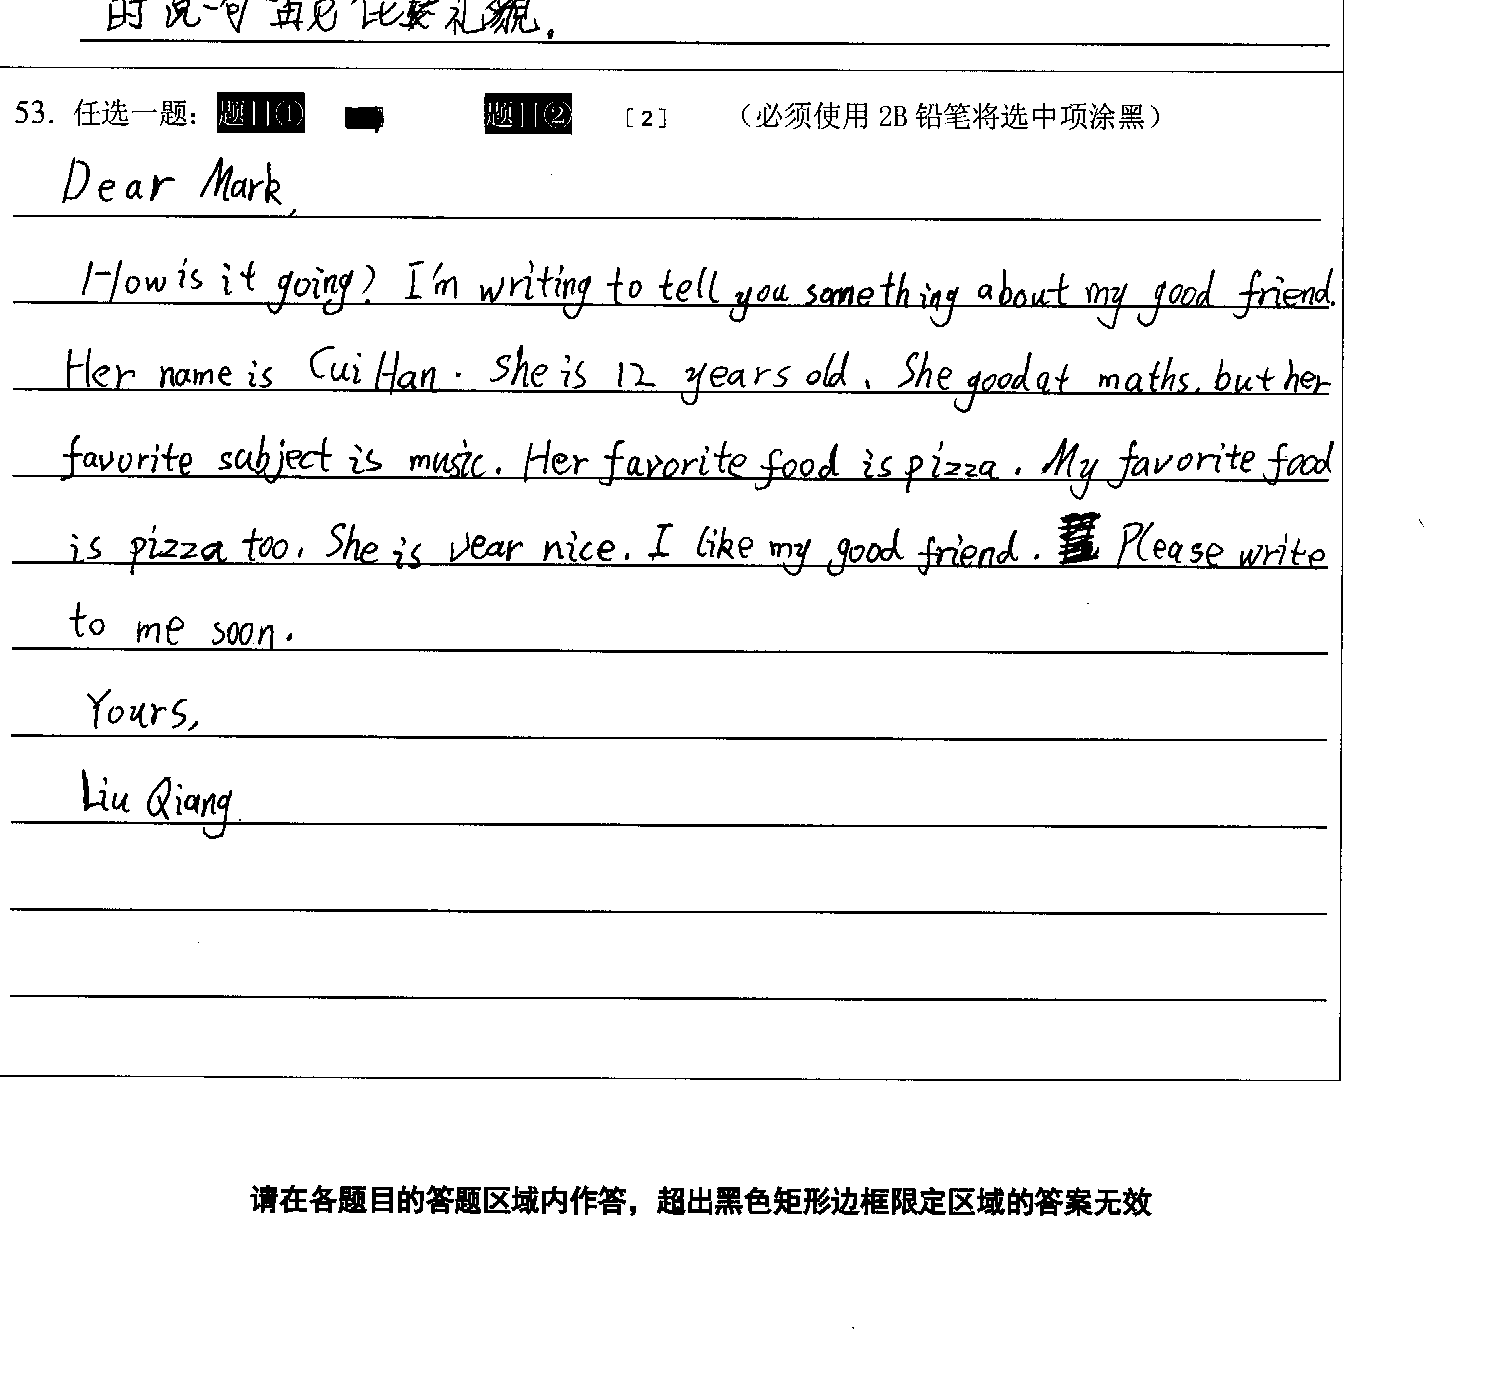 时说一句再见比较礼貌.
53. 任选一题: 题目① 题目② [2] (必须使用 2B 铅笔将选中项涂黑)
Dear Mark,
How is it going? I'm writing to tell you something about my good friend.
Her name is Cui Han. She is 12 years old. She good at maths. but her
favorite subject is music. Her favorite food is pizza. My favorite food
is pizza too. She is vear nice. I like my good friend. Please write
to me soon.
Yours,
Liu Qiang
请在各题目的答题区域内作答，超出黑色矩形边框限定区域的答案无效